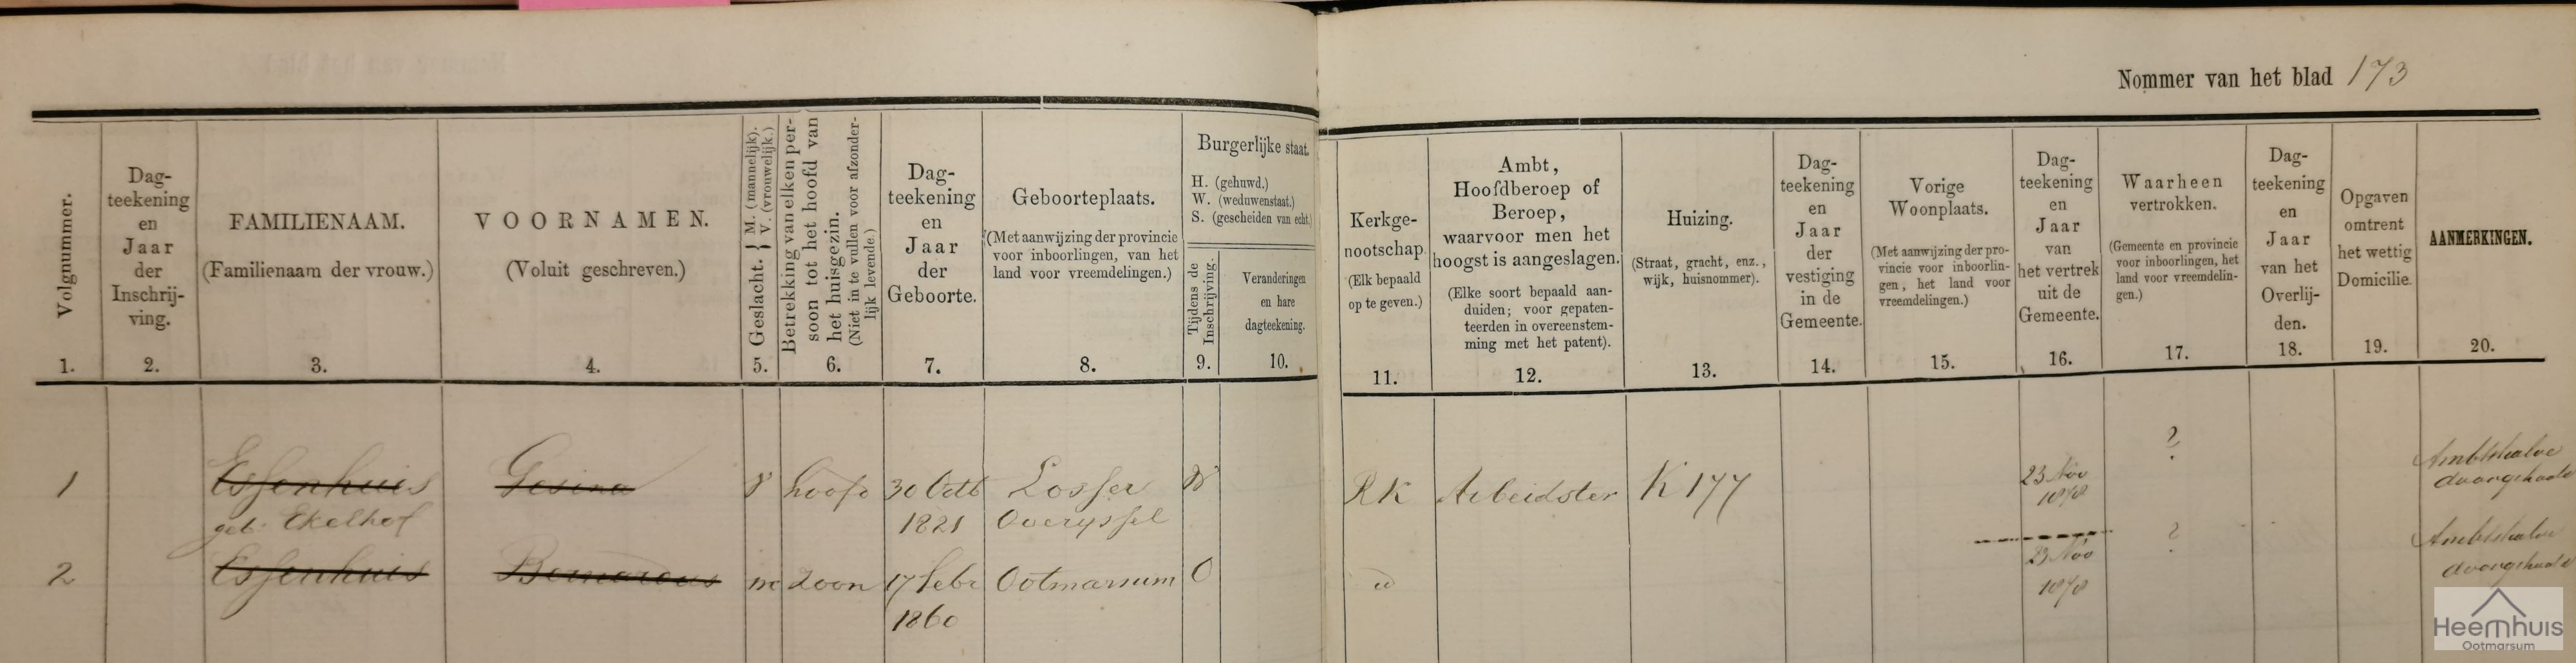 Nommer van het blad 173
Volgnummer.
1.
Dag-
teekening
en
Jaar
der
Inschrij-
ving.
2.
FAMILIENAAM.
(Familienaam der vrouw.)
3.
VOORNAMEN.
(Voluit geschreven.)
4.
Geslacht. { M. (mannelijk).
V. (vrouwelijk.)
5.
Betrekking van elken per-
soon tot het hoofd van
het huisgezin.
(Niet in te vullen voor afzonder-
lijk levende.)
6.
Dag-
teekening
en
Jaar
der
Geboorte.
7.
Geboorteplaats.
(Met aanwijzing der provincie
voor inboorlingen, van het
land voor vreemdelingen.)
8.
Burgerlijke staat.
H. (gehuwd.)
W. (weduwenstaat.)
S. (gescheiden van echt.)
Tijdens de
Inschrijving.
9.
Veranderingen
en hare
dagteekening.
10.
Kerkge-
nootschap
(Elk bepaald
op te geven.)
11.
Ambt,
Hoofdberoep of
Beroep,
waarvoor men het
hoogst is aangeslagen.
(Elke soort bepaald aan-
duiden; voor gepaten-
teerden in overeenstem-
ming met het patent).
12.
Huizing.
(Straat, gracht, enz.,
wijk, huisnommer).
13.
Dag-
teekening
en
Jaar
der
vestiging
in de
Gemeente.
14.
Vorige
Woonplaats.
(Met aanwijzing der pro-
vincie voor inboorlin-
gen, het land voor
vreemdelingen.)
15.
Dag-
teekening
en
Jaar
van
het vertrek
uit de
Gemeente.
16.
Waarheen
vertrokken.
(Gemeente en provincie
voor inboorlingen, het
land voor vreemdelin-
gen.)
17.
Dag-
teekening
en
Jaar
van het
Overlij-
den.
18.
Opgaven
omtrent
het wettig
Domicilie.
19.
AANMERKINGEN.
20.
1 Essenhuis Gesina V hoofd 30 Octb Losser W RK Arbeidster K 177 23 Nov ? Ambtshalve
geb. Ekelhof 1821 Overyssel 1878 doorgehaald
2 Essenhuis Bernardus m zoon 17 Febr Ootmarsum O id 23 Nov ? Ambtshalve
1860 1878 doorgehaald
Heemhuis
Ootmarsum